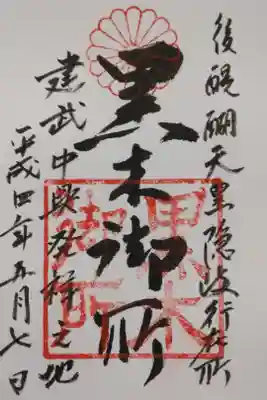 後醍醐天皇隠岐行在所
黒木御所
建武中興発祥之地
平成四年五月七日
黒木
御所